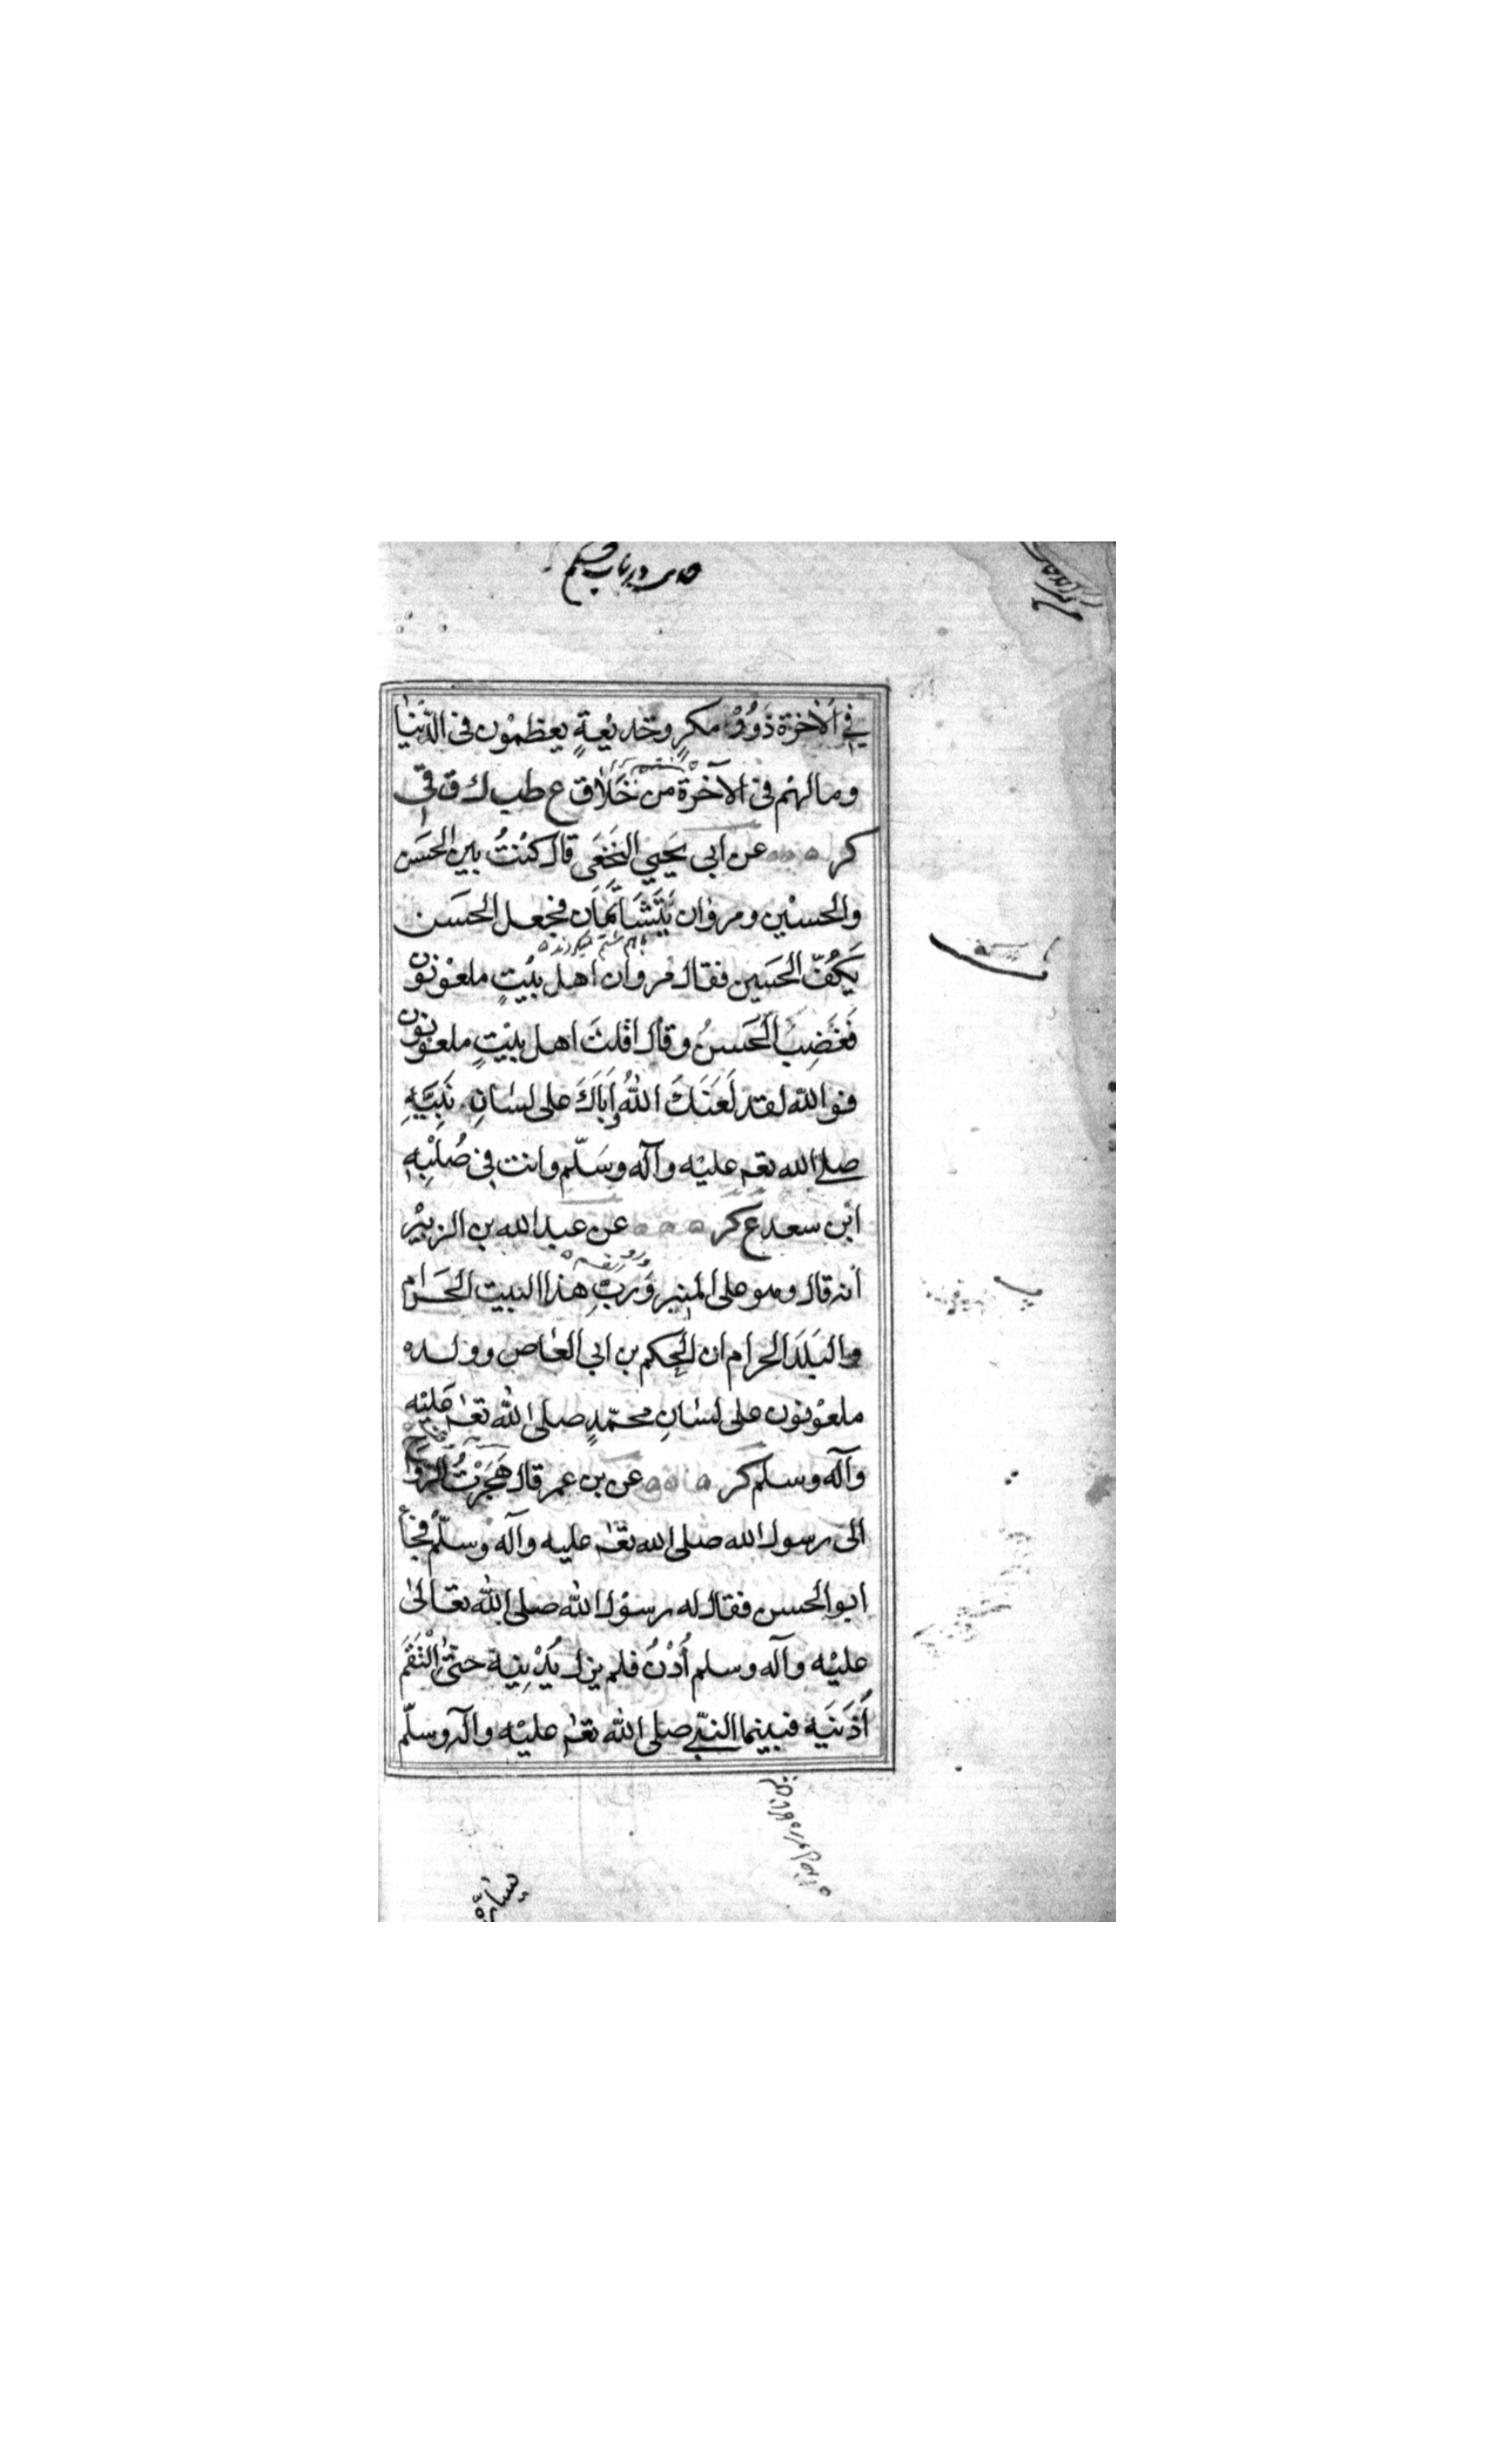 في الاٰخرة ذَوُوْ مَكرٍ وخديْعةٍ يعظمُوْن فى الدّنيا
ومالهُم فى الآخرة من خَلَاق ع طب ك ق فى
كر عن ابى يَحيي النخَعى قال كنْتُ بين الحسَن
والحسنْين ومروان يَتَشَاتَمَان فجعل الحسَن
باهم شتم میکردند
يَكُفّ الحسَين فقال مروان اهل بيْتٍ ملعوْنون
فَغَضِبَ الحَسنُ وقال اقلتَ اهل بيْتٍ ملعونون
فوالله لقد لَعَنَكَ اللهُ واَبَاكَ على لسَانِ نَبِيّهِ
صلى الله تعـ عليْه وآله وسَلّم وانت فى صُلْبِه
ابن سعد ع كر عن عبد الله بن الزبيْر
انه قال وهو على المنبر وَرَبِّ هذا البيت الحَرام
والبَلَد الحرام ان الحكم بن ابى العاص وولده
ملعوْنون على لسَانِ محمّدٍ صلى الله تعـ عَليْه
وآله وسلم كر عن بن عمر قال هَجَرْتُ الروَاح
الى رسول الله صلى الله تعـ عليه وآله وسلّم فجأ
ابو الحسن فقال له رسوْل الله صلى الله تعالىٰ
عليْه وآله وسلم اُدْنُ فلم يزل يُدْنِيْه حتىّ اِلْتَقَمَ
اُذنَيه فبينما النبّي صلى الله تعـ عليْه وآله وسلّم